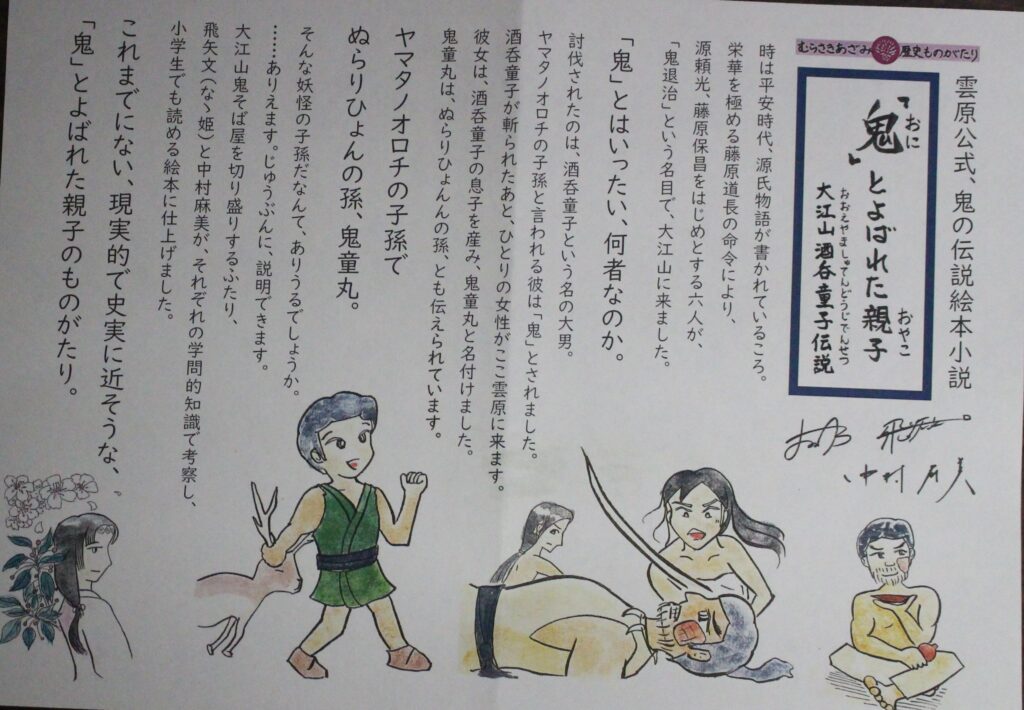 むらさきあざみ 歴史ものがたり
雲原公式、鬼の伝説絵本小説。
「鬼」とよばれた親子
おに
おやこ
大江山酒呑童子伝説
おおえやましゅてんどうじでんせつ
中村麻美
時は平安時代、源氏物語が書かれているころ。
栄華を極める藤原道長の命令により、
源頼光、藤原保昌をはじめとする六人が、
「鬼退治」という名目で、大江山に来ました。
「鬼」とはいったい、何者なのか。
討伐されたのは、酒呑童子という名の大男。
ヤマタノオロチの子孫と言われる彼は「鬼」とされました。
酒呑童子が斬られたあと、ひとりの女性がここ雲原に来ます。
彼女は、酒呑童子の息子を産み、鬼童丸と名付けました。
鬼童丸は、ぬらりひょんんの孫、とも伝えられています。
ヤマタノオロチの子孫で
ぬらりひょんの孫、鬼童丸。
そんな妖怪の子孫だなんて、ありうるでしょうか。
……ありえます。じゅうぶんに、説明できます。
大江山鬼そば屋を切り盛りするふたり、
飛矢文（なゝ姫）と中村麻美が、それぞれの学問的知識で考察し、
小学生でも読める絵本に仕上げました。
これまでにない、現実的で史実に近そうな、。
「鬼」とよばれた親子のものがたり。